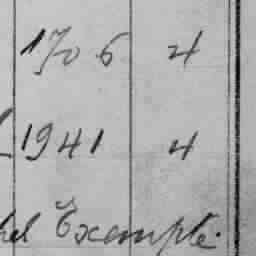 1706 4
1941 4
Exempte.